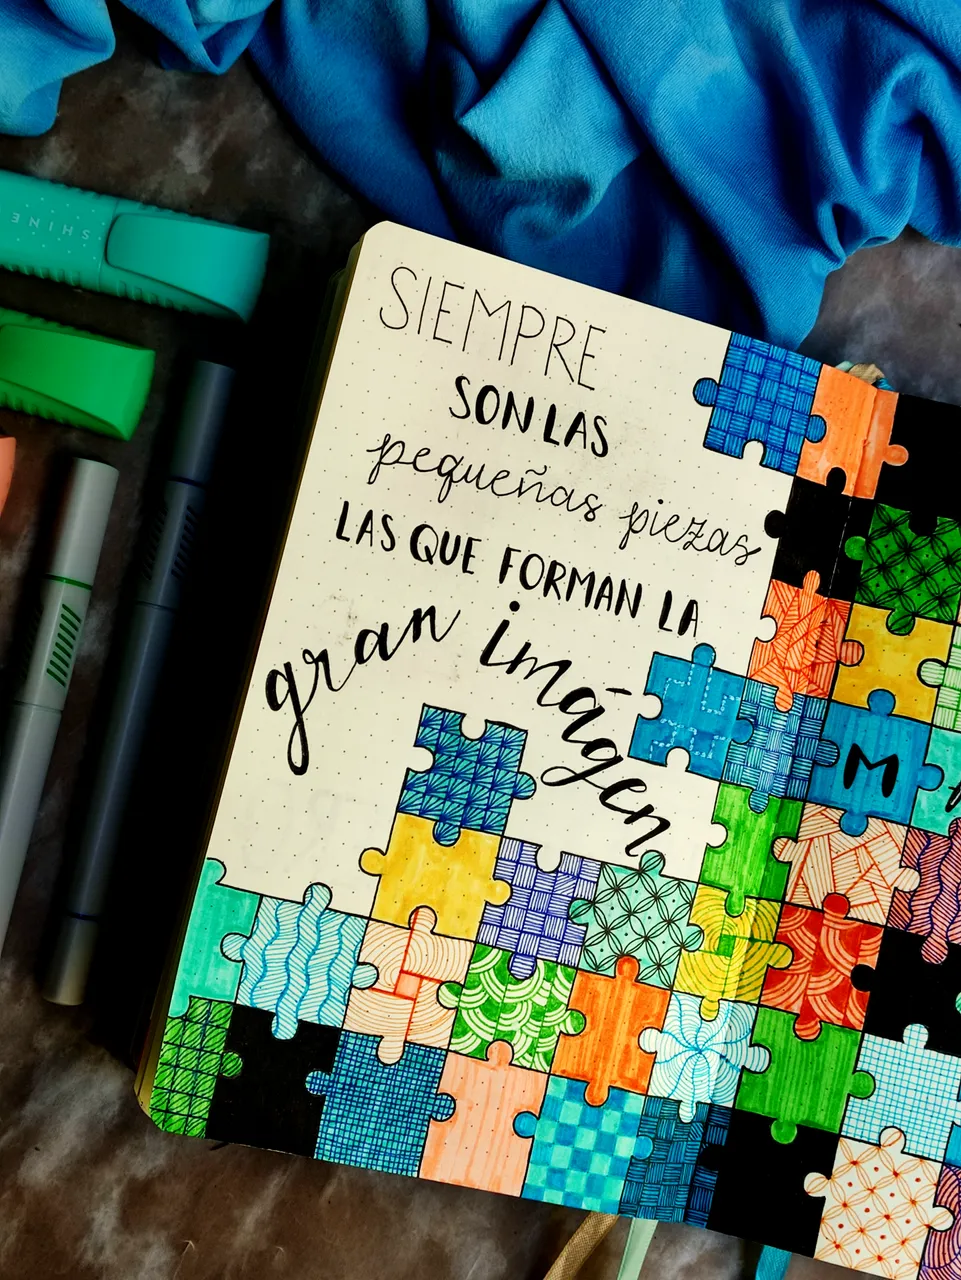 SHINE
SIEMPRE
SON LAS
pequeñas piezas
LAS QUE FORMAN LA
gran imágen
M